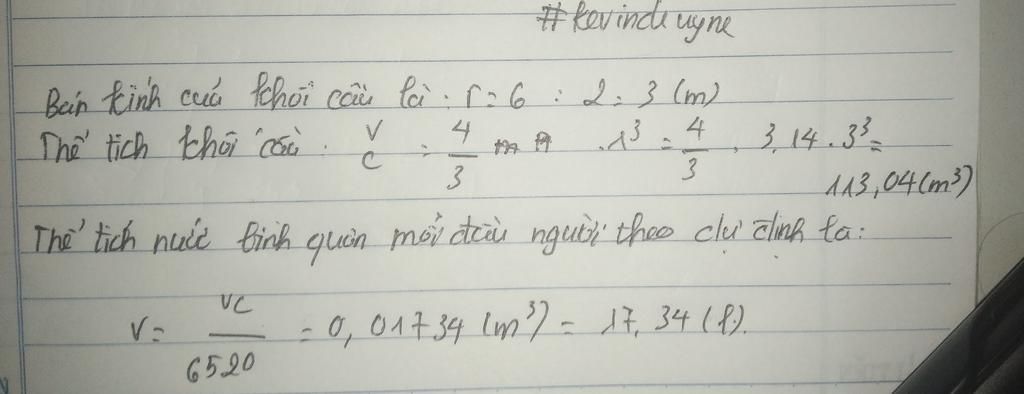 #kevindeuyne
Bán kính cuả khối cầu là : r = 6 : 2 = 3 (m)
Thể tích khối cầu : V c = 4/3 π . r³ = 4/3 . 3,14 . 3³ =
113,04 (m³)
Thể tích nước bình quân mỗi đầu người theo dự định là :
V = Vc/6520 = 0,01734 (m³) = 17,34 (l).